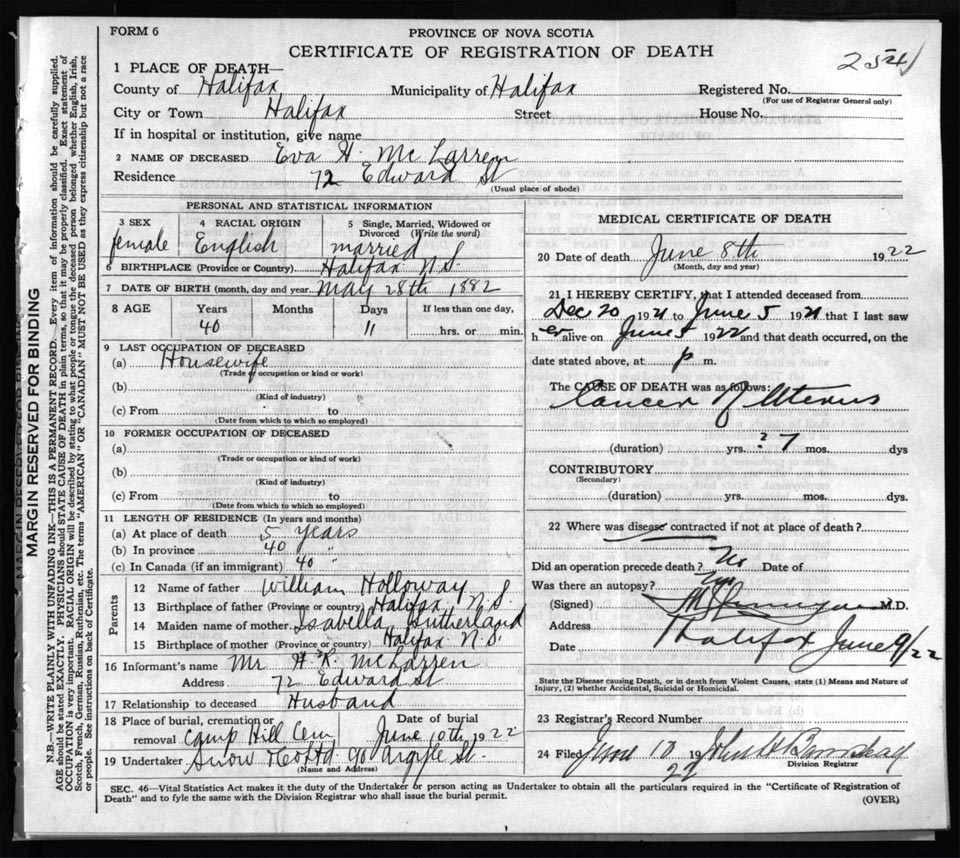 FORM 6
PROVINCE OF NOVA SCOTIA
CERTIFICATE OF REGISTRATION OF DEATH
254
1 PLACE OF DEATH—
County of Halifax Municipality of Halifax Registered No.
(For use of Registrar General only)
City or Town Halifax Street House No.
If in hospital or institution, give name
2 NAME OF DECEASED Eva H. McLarren
Residence 72 Edward St
(Usual place of abode)
PERSONAL AND STATISTICAL INFORMATION
3 SEX female
4 RACIAL ORIGIN English
5 Single, Married, Widowed or Divorced (Write the word) married
6 BIRTHPLACE (Province or Country) Halifax N.S.
7 DATE OF BIRTH (month, day and year) May 28th 1882
8 AGE Years Months Days If less than one day,
40 11 hrs. or min.
9 LAST OCCUPATION OF DECEASED
(a) Housewife
(Trade or occupation or kind of work)
(b)
(Kind of industry)
(c) From to
(Date from which to which so employed)
10 FORMER OCCUPATION OF DECEASED
(a)
(Trade or occupation or kind of work)
(b)
(Kind of industry)
(c) From to
(Date from which to which so employed)
11 LENGTH OF RESIDENCE (In years and months)
(a) At place of death 5 years
(b) In province 40 "
(c) In Canada (if an immigrant) 40 "
Parents
12 Name of father William Holloway
13 Birthplace of father (Province or country) Halifax N.S.
14 Maiden name of mother Isabella Sutherland
15 Birthplace of mother (Province or country) Halifax N.S.
16 Informant's name Mr H. R. McLarren
Address 72 Edward St
17 Relationship to deceased Husband
18 Place of burial, cremation or removal Camp Hill Cem
Date of burial June 10th 1922
19 Undertaker Snow & Co Ltd 90 Argyle St.
(Name and Address)
MEDICAL CERTIFICATE OF DEATH
20 Date of death June 8th 1922
(Month, day and year)
21 I HEREBY CERTIFY, that I attended deceased from
Dec 20 1921 to June 5 1921 that I last saw
h er alive on June 5 1922 and that death occurred, on the
date stated above, at p m.
The CAUSE OF DEATH was as follows:
Cancer of Uterus
(duration) yrs. ? 7 mos. dys
CONTRIBUTORY
(Secondary)
(duration) yrs. mos. dys.
22 Where was disease contracted if not at place of death?
Did an operation precede death? No Date of
Was there an autopsy?
(Signed) M.D.
Address Halifax
Date June 9/22
State the Disease causing Death, or in death from Violent Causes, state (1) Means and Nature of
Injury, (2) whether Accidental, Suicidal or Homicidal.
23 Registrar's Record Number
24 File June 10 1922 John H
Division Registrar
SEC. 46—Vital Statistics Act makes it the duty of the Undertaker or person acting as Undertaker to obtain all the particulars required in the "Certificate of Registration of
Death" and to fyle the same with the Division Registrar who shall issue the burial permit.
(OVER)
MARGIN RESERVED FOR BINDING
N.B.—WRITE PLAINLY WITH UNFADING INK—THIS IS A PERMANENT RECORD. Every item of information should be carefully supplied.
AGE should be stated EXACTLY. PHYSICIANS should STATE CAUSE OF DEATH in plain terms, so that it may be properly classified. Exact statement of
OCCUPATION is very important. RACIAL ORIGIN will be described by stating to what people or tongue the deceased person belonged whether English, Irish,
Scotch, French, German, Russian, Ruthenian, etc. The terms "AMERICAN" or "CANADIAN" MUST NOT BE USED as they express citizenship but not a race
or people. See instructions on back of Certificate.